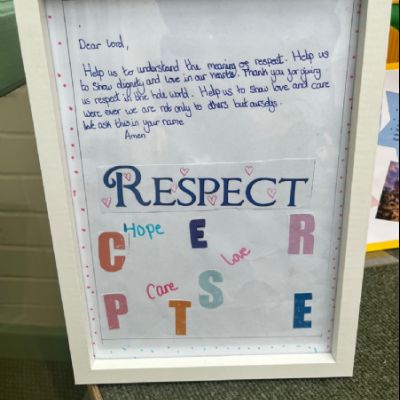 Dear Lord,
Help us to understand the meaning of respect. Help us
to show dignity and love in our hearts. Thank you for giving
us respect in the hole world. Help us to show love and care
were ever we are not only to others but ourselfs.
We ask this in your name
Amen
RESPECT
Hope E R
C Love
Care S
P T E